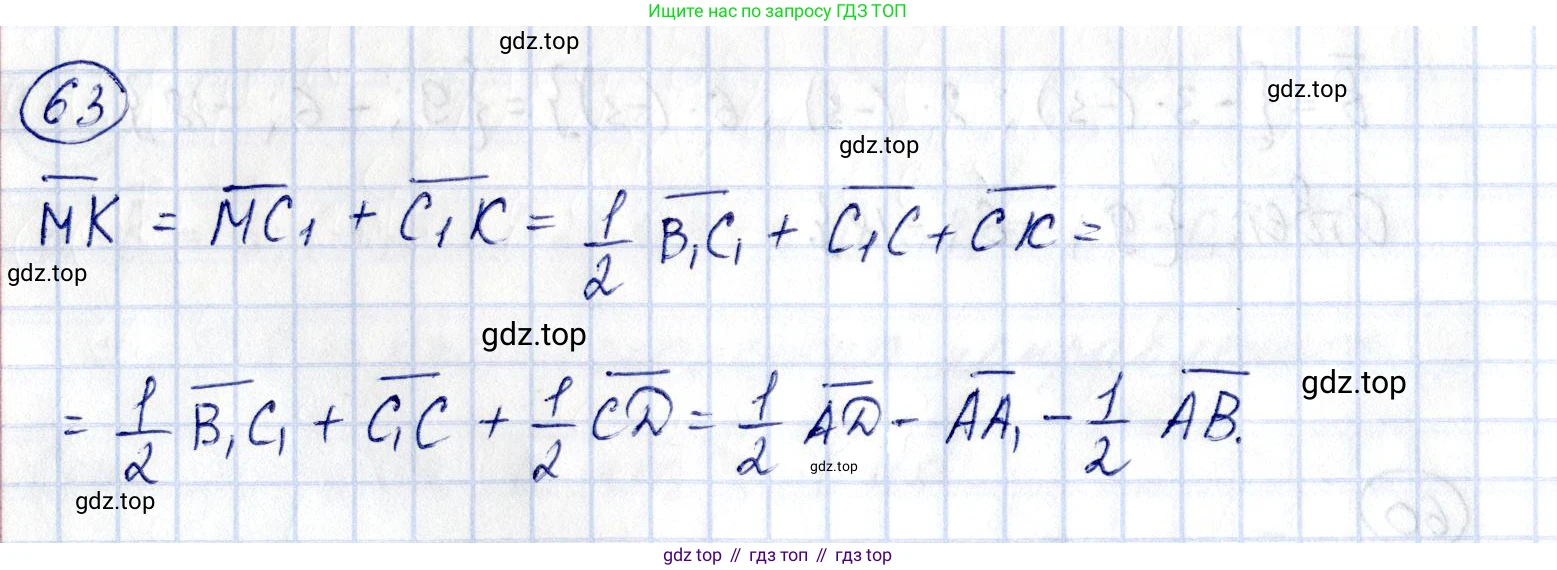 Ищите нас по запросу ГДЗ ТОП
gdz.top
63
gdz.top
gdz.top
M̅K̅ = M̅C̅₁ + C̅₁K̅ = 1/2 B̅₁C̅₁ + C̅₁C̅ + C̅K̅ =
gdz.top
gdz.top
gdz.top
= 1/2 B̅₁C̅₁ + C̅₁C̅ + 1/2 C̅D̅ = 1/2 A̅D̅ - A̅A̅₁ - 1/2 A̅B̅.
gdz.top
gdz.top
gdz top // гдз топ // гдз top